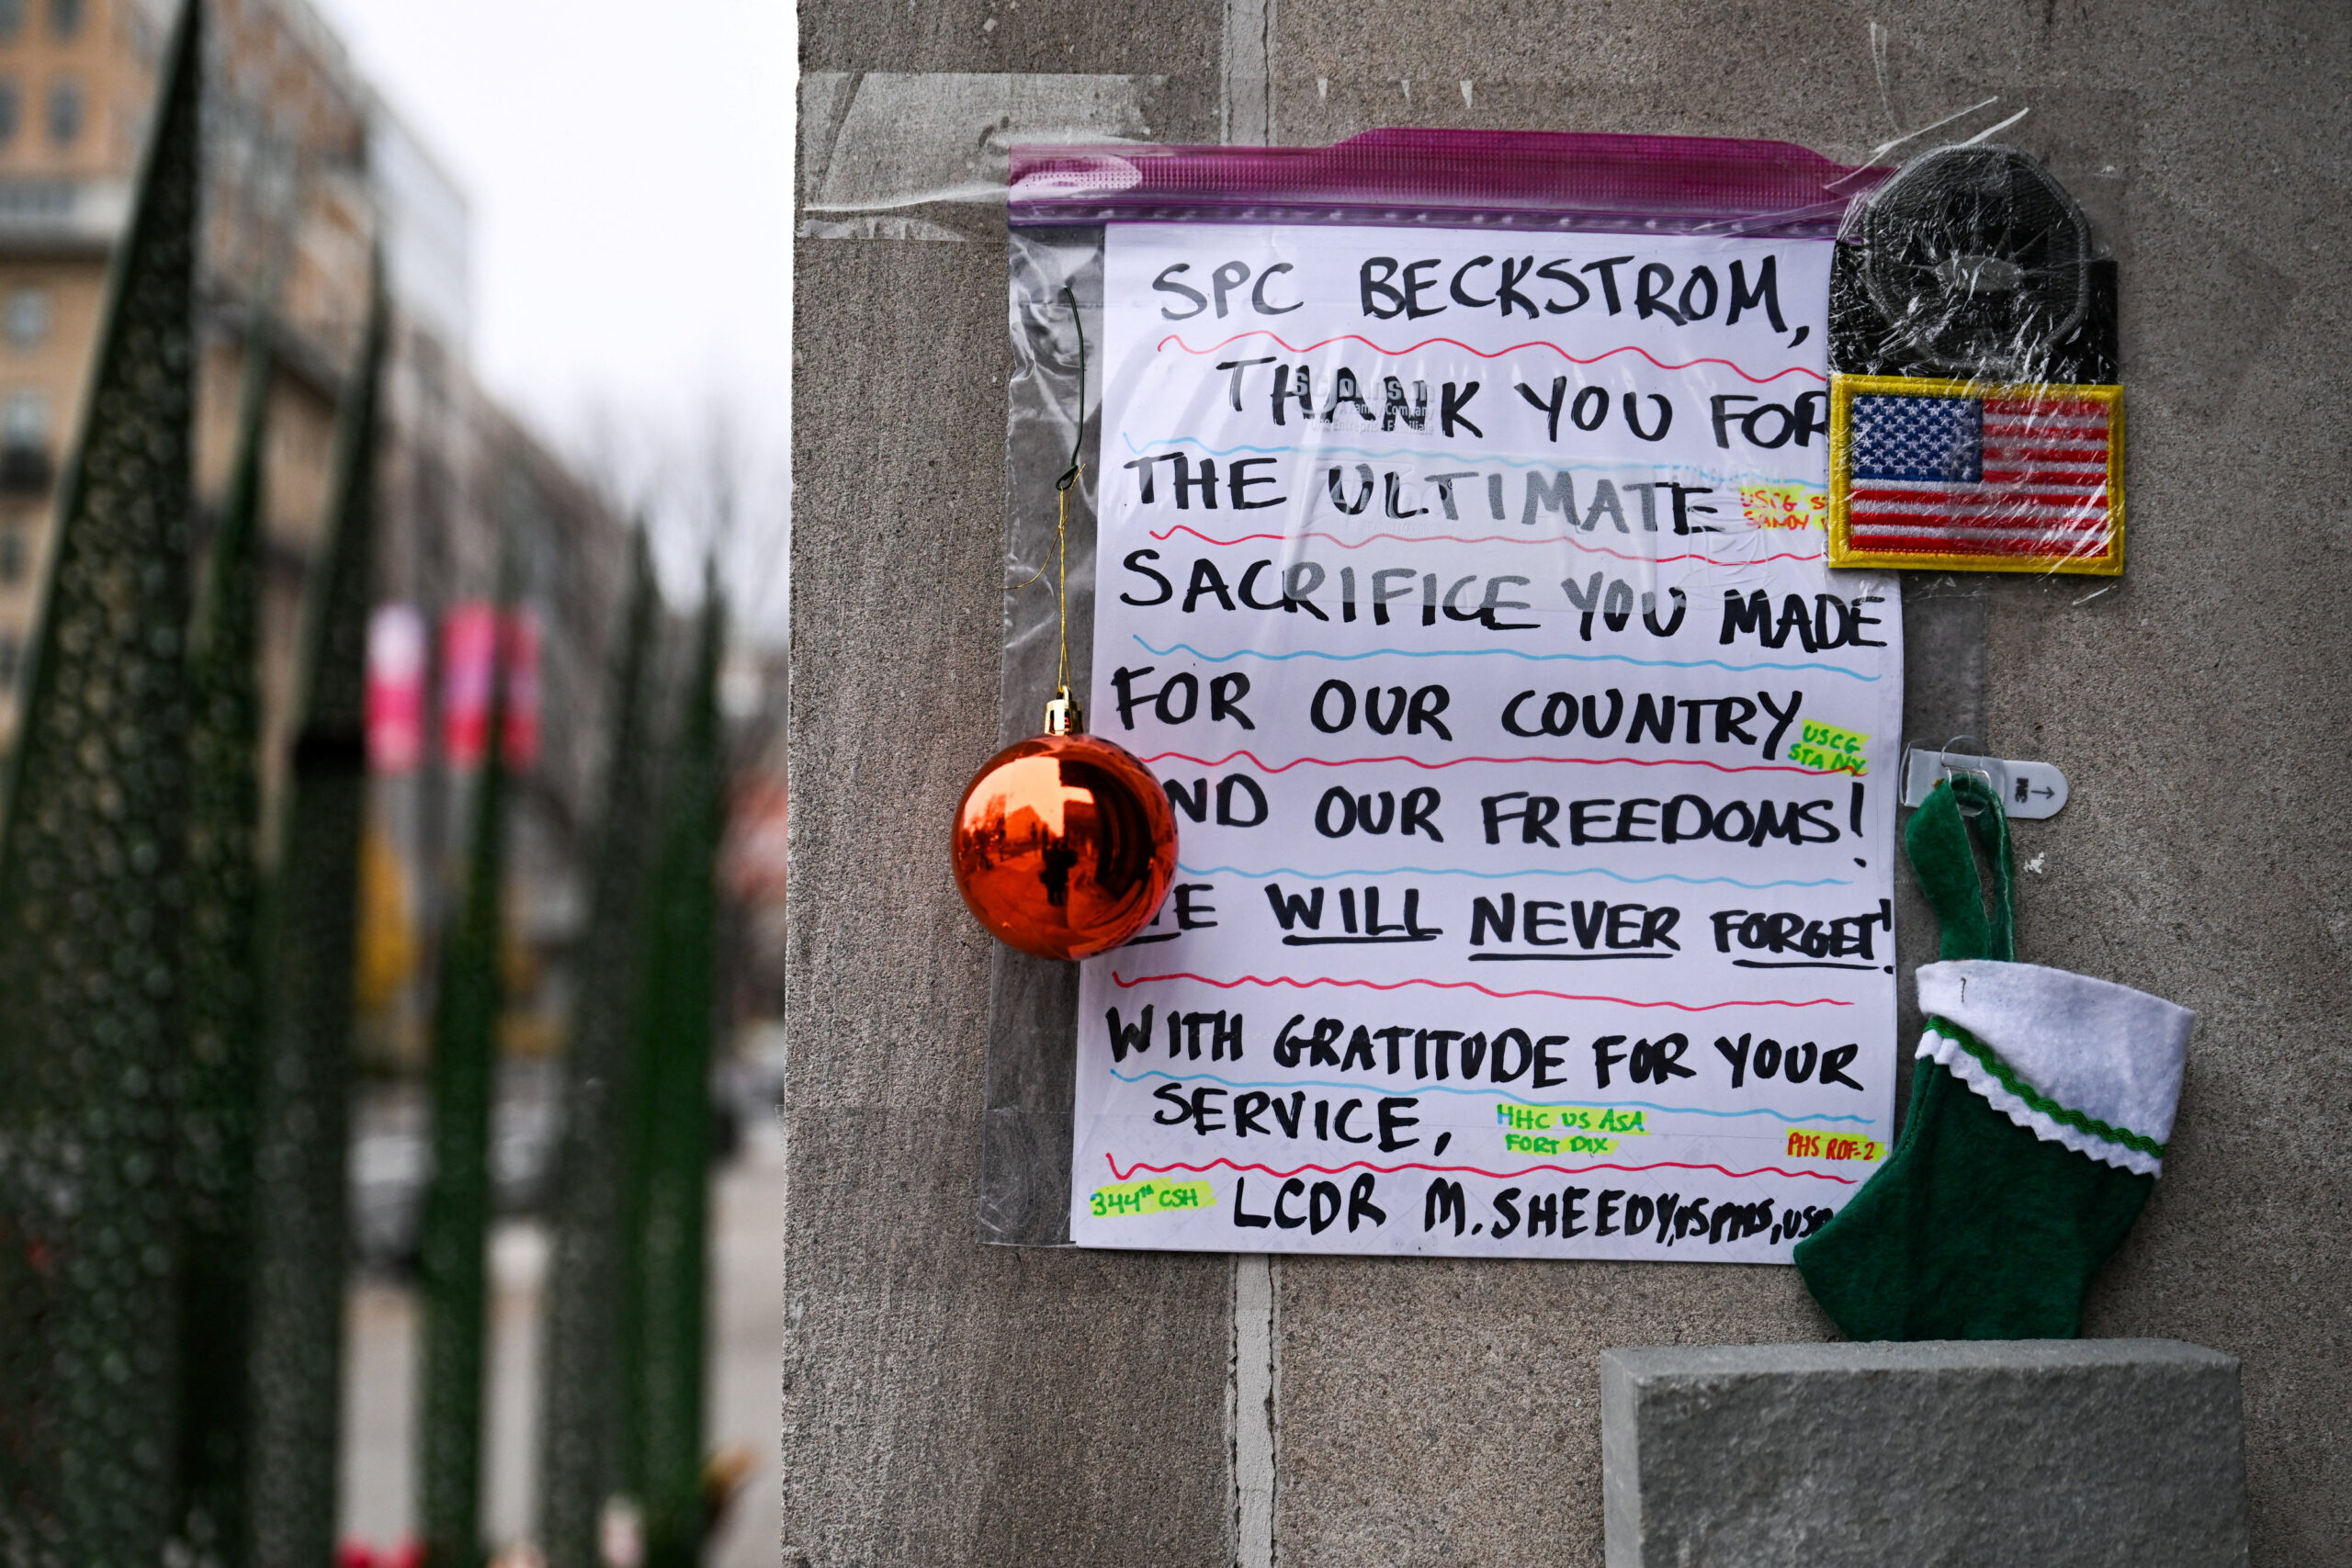 SPC BECKSTROM,
THANK YOU FOR
THE ULTIMATE
USCG
SANDY
SACRIFICE YOU MADE
FOR OUR COUNTRY
USCG
STA NY
ND OUR FREEDOMS!
E WILL NEVER FORGET!
WITH GRATITUDE FOR YOUR
SERVICE,
HHC US ASA
FORT DIX
PHS RDF-2
344TH CSH
LCDR M. SHEEDY, USPHS,